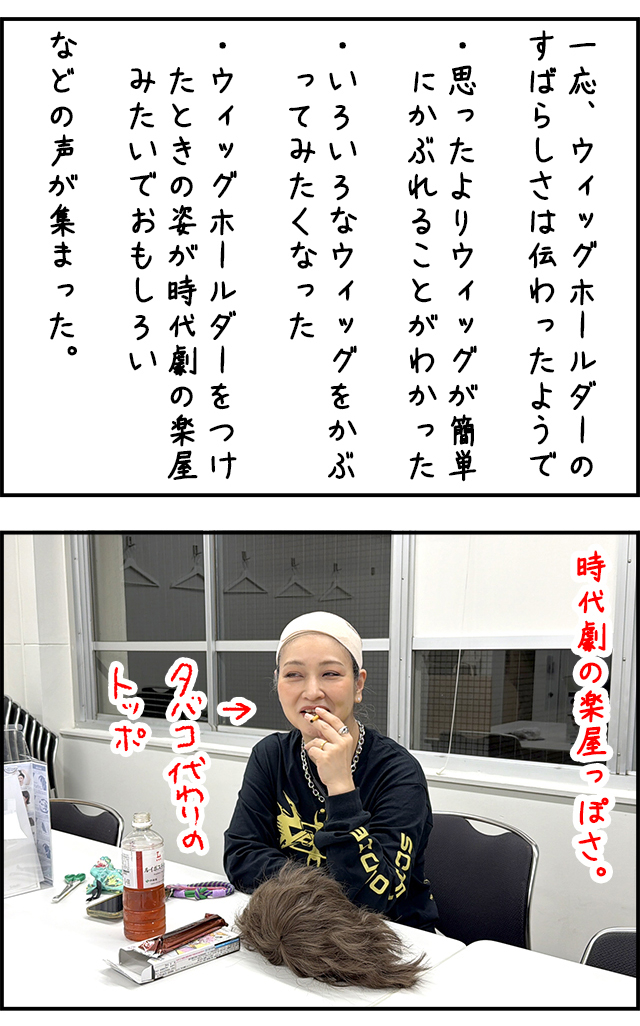 一応、ウィッグホールダーの
すばらしさは伝わったようで
・思ったよりウィッグが簡単
にかぶれることがわかった
・いろいろなウィッグをかぶ
ってみたくなった
・ウィッグホールダーをつけ
たときの姿が時代劇の楽屋
みたいでおもしろい
などの声が集まった。
時代劇の楽屋っぽさ。
タバコ代わりの
トッポ
ルイボスティー